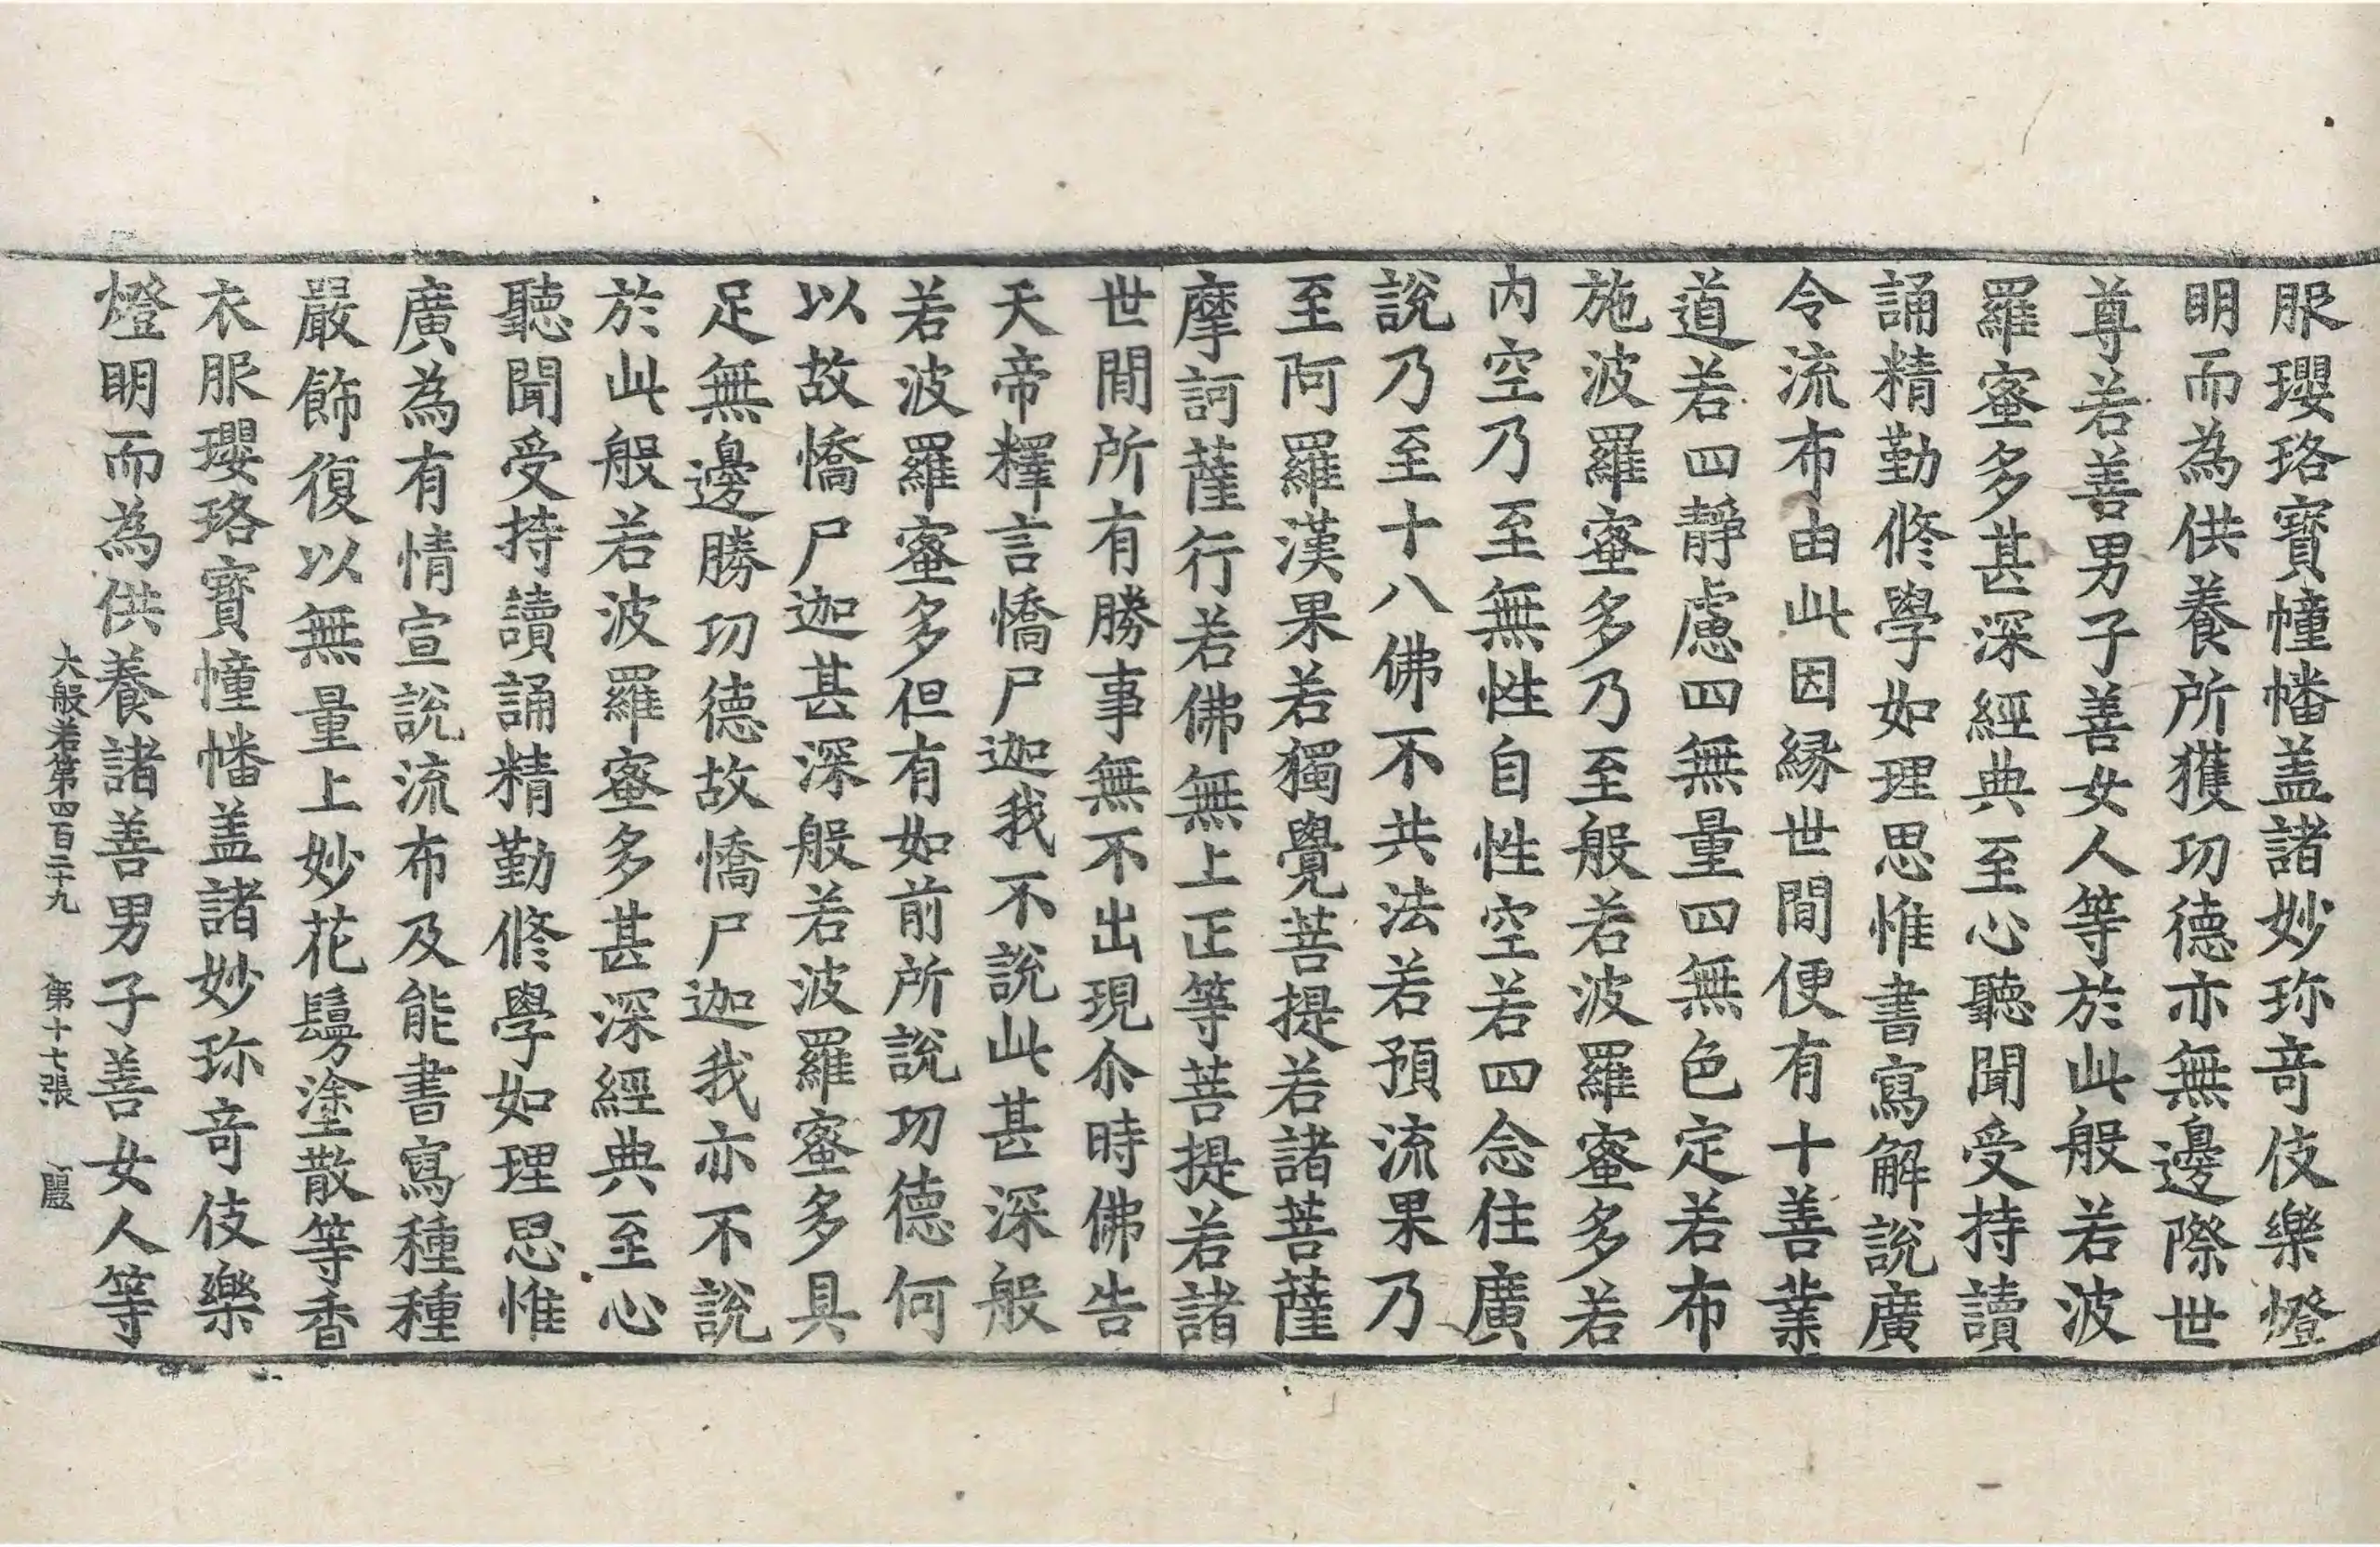 服瓔珞寶幢幡盖諸妙珎竒伎樂燈
明而為供養所獲功德亦無邊際世
尊若善男子善女人等於此般若波
羅蜜多甚深經典至心聽聞受持讀
誦精勤修學如理思惟書寫解說廣
令流布由此因縁世間便有十善業
道若四靜慮四無量四無色定若布
施波羅蜜多乃至般若波羅蜜多若
內空乃至無性自性空若四念住廣
說乃至十八佛不共法若預流果乃
至阿羅漢果若獨覺菩提若諸菩薩
摩訶薩行若佛無上正等菩提若諸
世間所有勝事無不出現尒時佛告
天帝釋言憍尸迦我不說此甚深般
若波羅蜜多但有如前所說功德何
以故憍尸迦甚深般若波羅蜜多具
足無邊勝功德故憍尸迦我亦不說
於此般若波羅蜜多甚深經典至心
聽聞受持讀誦精勤修學如理思惟
廣為有情宣說流布及能書寫種種
嚴飾復以無量上妙花鬘塗散等香
衣服瓔珞寶幢幡盖諸妙珎竒伎樂
燈明而為供養諸善男子善女人等
大般若第四百二十九 第十七張 麗